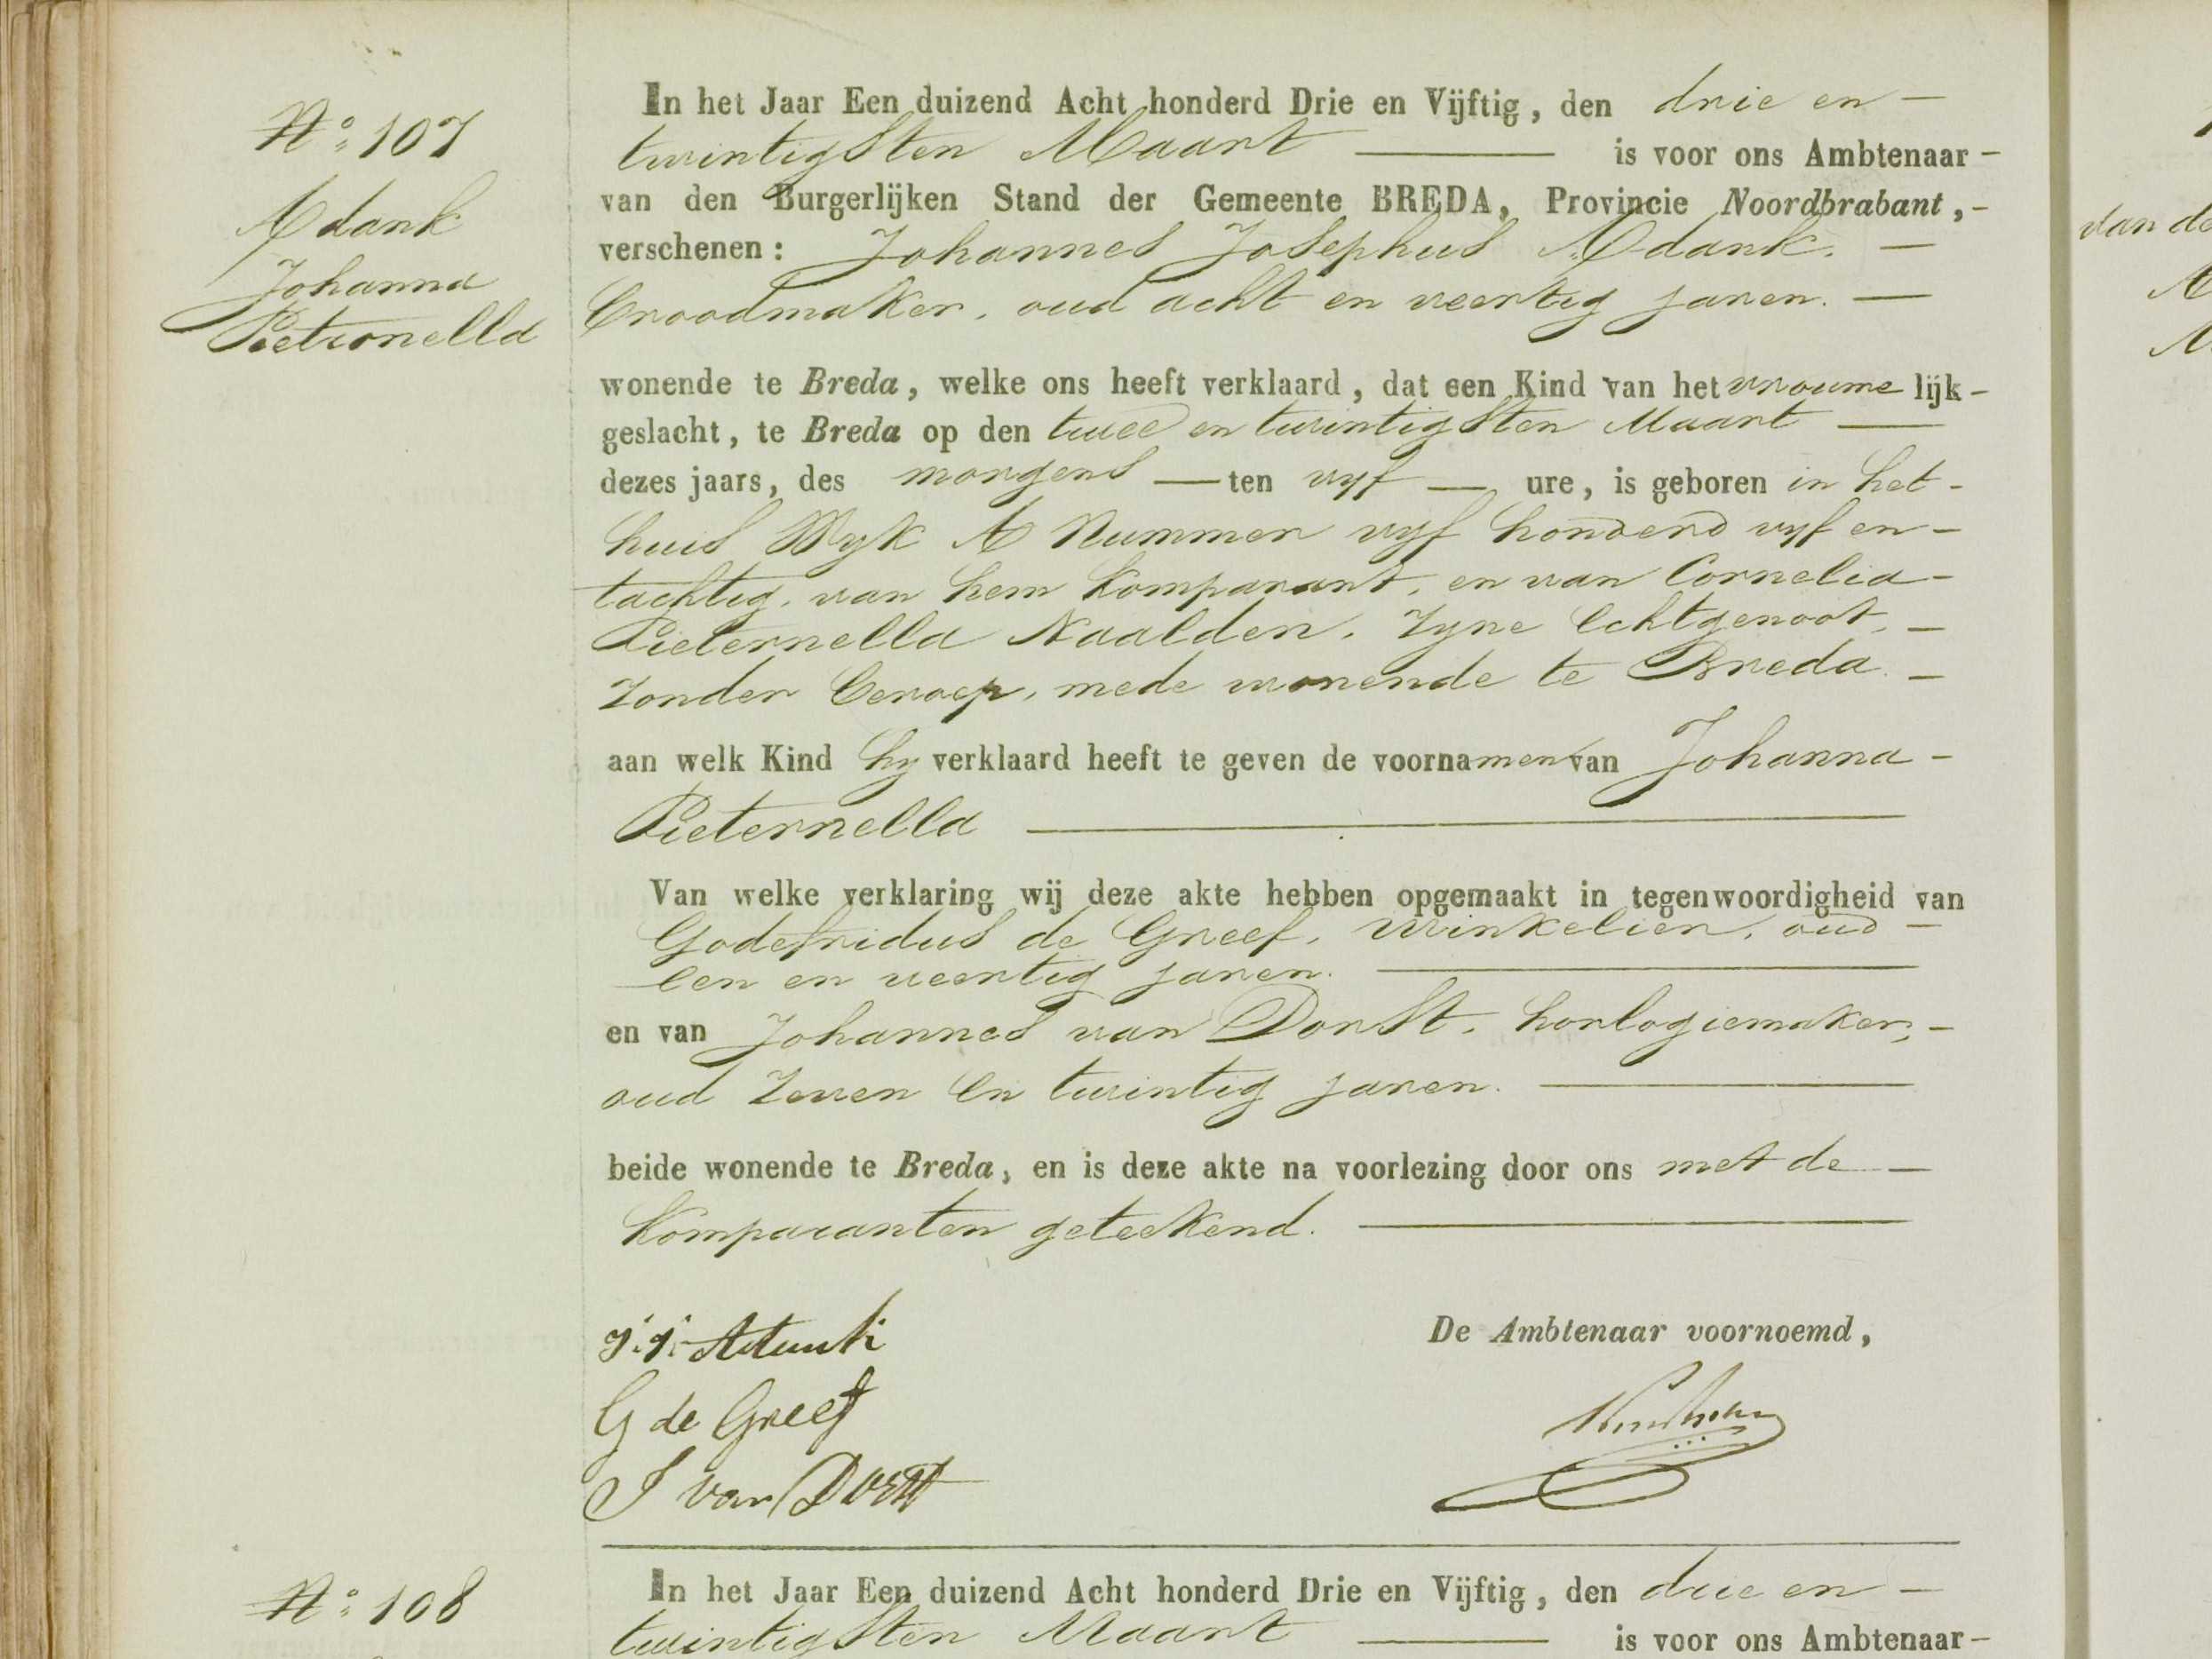 No. 107
Adank
Johanna
Petronella
In het Jaar Een duizend Acht honderd Drie en Vijftig, den drie en –
twintigsten Maart — is voor ons Ambtenaar –
van den Burgerlijken Stand der Gemeente BREDA, Provincie Noordbrabant, –
verschenen: Johannes Josephus Adank. —
broodmaker, oud acht en veertig jaren. —
wonende te Breda, welke ons heeft verklaard, dat een Kind van het vrouwe lijk –
geslacht, te Breda op den twee en twintigsten Maart —
dezes jaars, des morgens — ten vyf — ure, is geboren in het –
huis Wyk A Nummer vyf honderd vyf en –
tachtig, van hem komparant, en van Cornelia –
Pieternella Naalden, Zyne Echtgenoot, –
Zonder beroep, mede wonende te Breda. –
aan welk Kind hy verklaard heeft te geven de voornamen van Johanna –
Pieternella —
Van welke verklaring wij deze akte hebben opgemaakt in tegenwoordigheid van
Godefridus de Greef, winkelier, oud –
een en veertig jaren. —
en van Johannes van Dorst, horlogiemaker, –
oud Zeven en twintig jaren. —
beide wonende te Breda, en is deze akte na voorlezing door ons met de —
komparanten geteekend. —
J. J. Adank
De Ambtenaar voornoemd,
G de Greef
J van Dorst
No. 108
In het Jaar Een duizend Acht honderd Drie en Vijftig, den drie en –
twintigsten Maart — is voor ons Ambtenaar –
van de